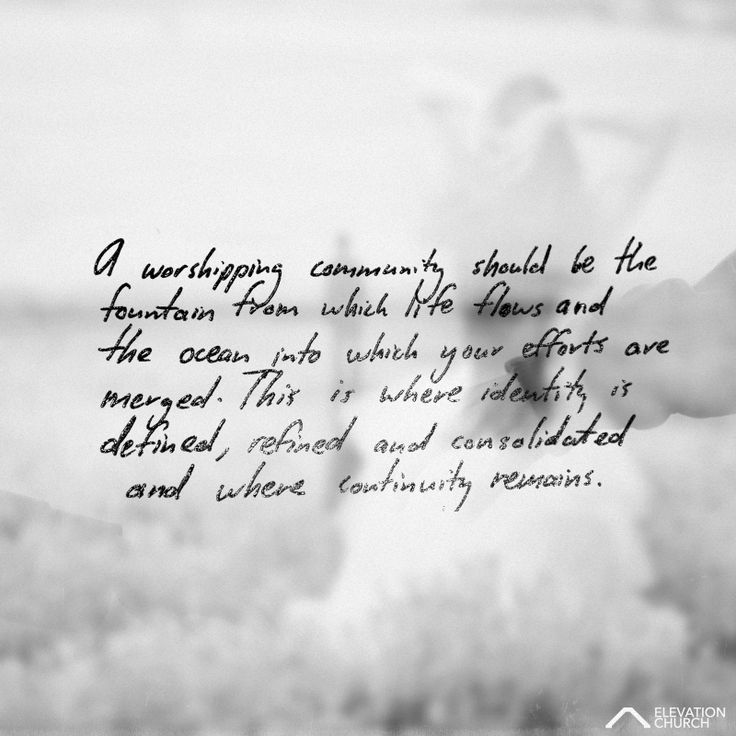 A worshipping community should be the
fountain from which life flows and
the ocean into which your efforts are
merged. This is where identity is
defined, refined and consolidated
and where continuity remains.
ELEVATION
CHURCH